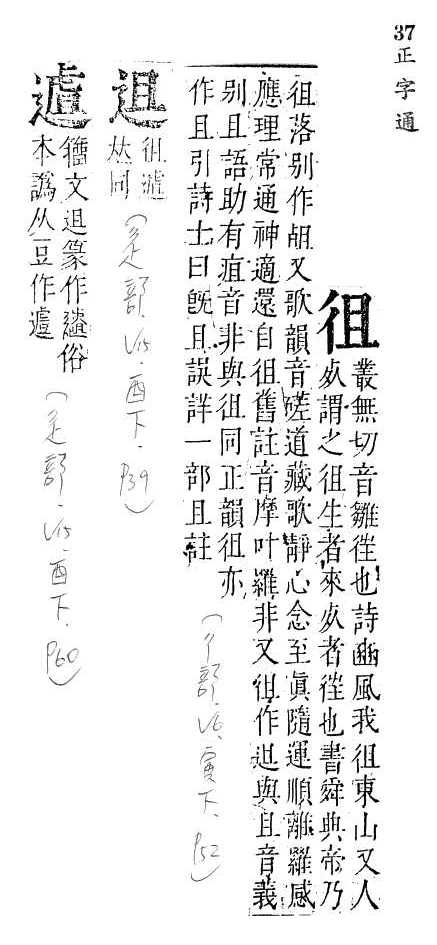 37 正字通
徂
叢無切音雛徃也詩豳風我徂東山又人
𣦸謂之徂生者來𣦸者徃也書舜典帝乃
徂落别作𣨙又歌韻音磋道藏歌靜心念至眞隨運順離羅感
應理常通神適還自徂舊註音摩叶羅非又徂作迌與且音義
别且語助有疽音非與徂同正韻徂亦
作且引詩士曰旣且誤詳一部且註
(彳部.V6.寅下.P52)
迌
徂遽
𠀤同
(辵部.V15.酉下.P39)
遽
籒文迌篆作䢐俗
本譌从豆作遽
(辵部.V15.酉下.P60)